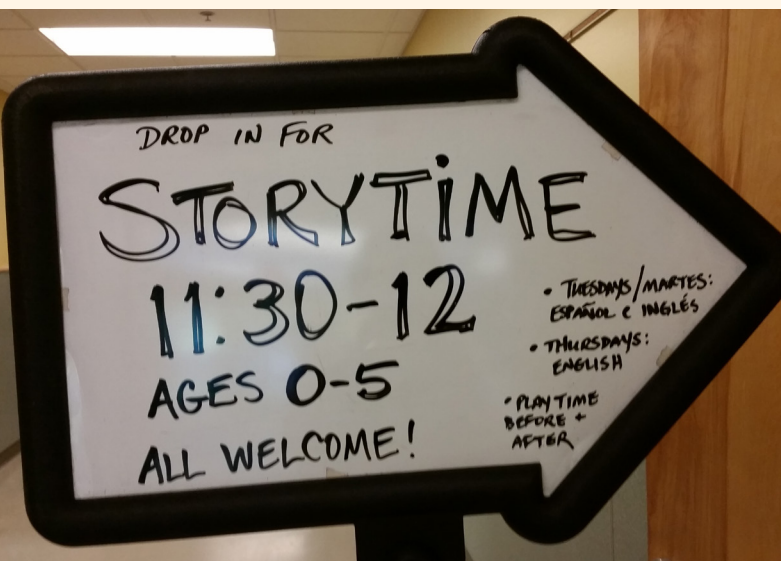 DROP IN FOR
STORYTiME
11:30-12
AGES 0-5
ALL WELCOME!
• TUESDAYS/MARTES:
ESPAÑOL e INGLÉS
• THURSDAYS:
ENGLISH
• PLAYTIME
BEFORE +
AFTER